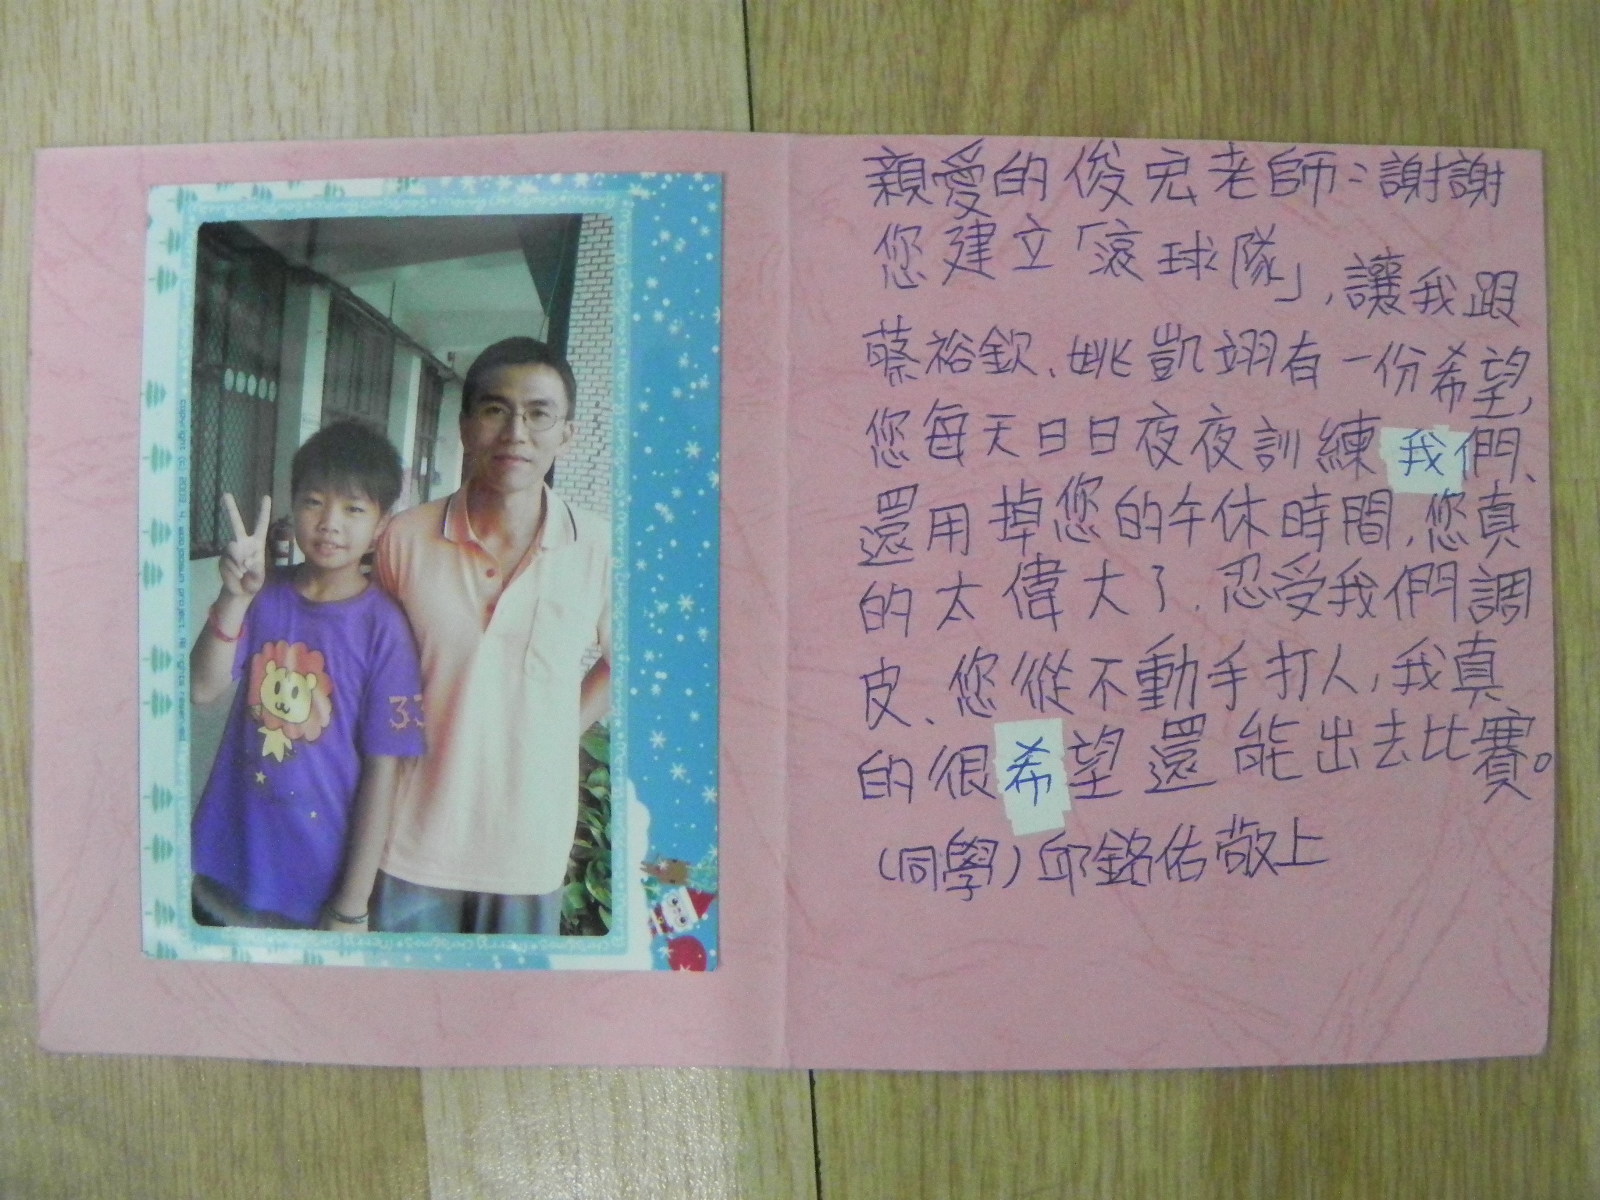 親愛的俊宏老師：謝謝
您建立「滾球隊」，讓我跟
蔡裕欽、姚凱翊有一份希望，
您每天日日夜夜訓練我們、
還用掉您的午休時間，您真
的太偉大了，忍受我們調
皮、您從不動手打人，我真
的很希望還能出去比賽。
（同學）邱銘佑敬上
33